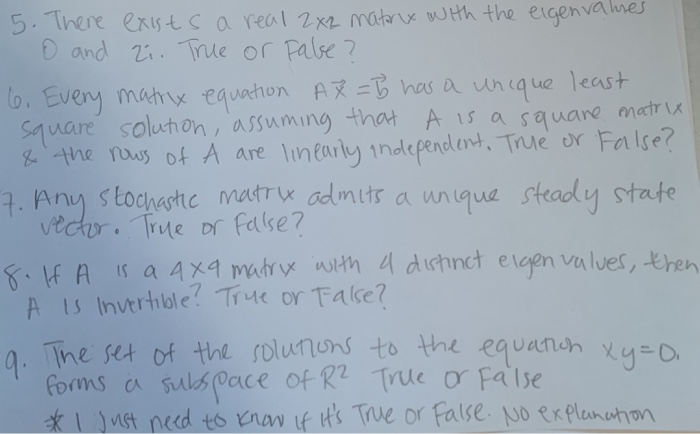 5. There exists a real 2x2 matrix with the eigenvalues
0 and 2i. True or False?
6. Every matrix equation Ax⃗ = b⃗ has a unique least
square solution, assuming that A is a square matrix
& the rows of A are linearly independent. True or False?
7. Any stochastic matrix admits a unique steady state
vector. True or False?
8. If A is a 4x4 matrix with 4 distinct eigenvalues, then
A is Invertible? True or False?
9. The set of the solutions to the equation xy=0.
forms a subspace of R² True or False
* I Just need to know if it's True or False. No explanation